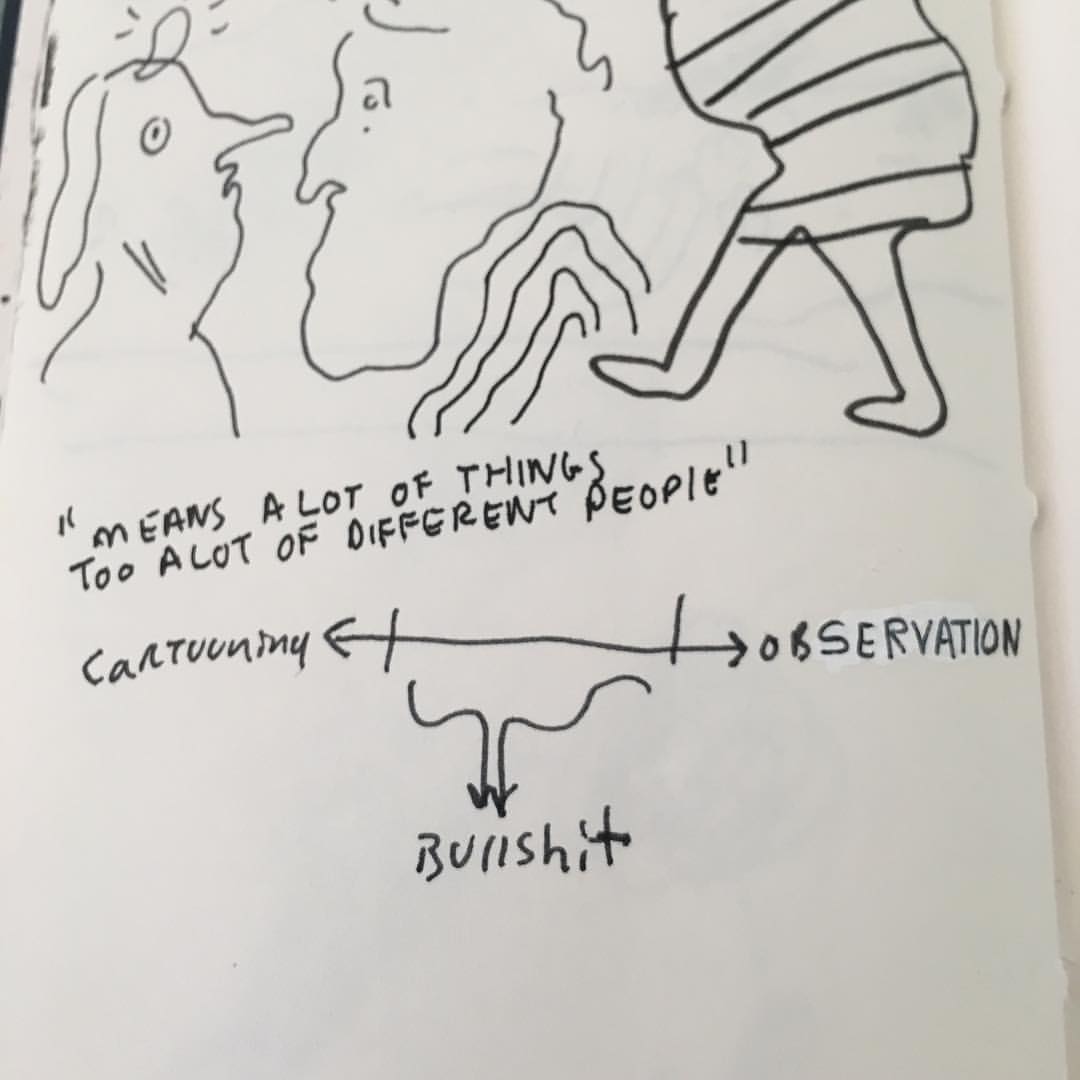 "MEANS A LOT OF THINGS
TOO A LOT OF DIFFERENT PEOPLE"
CARTOONING OBSERVATION
Bullshit